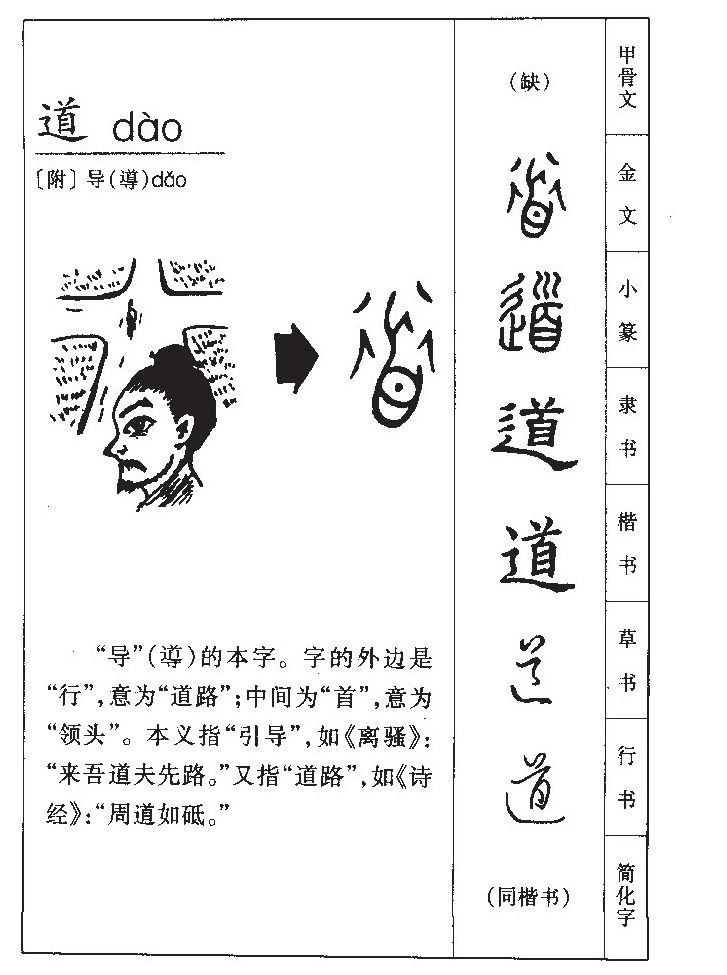 道 dào
〔附〕导(導)dǎo
“导”(導)的本字。字的外边是
“行”,意为“道路”;中间为“首”,意为
“领头”。本义指“引导”,如《离骚》:
“来吾道夫先路。”又指“道路”,如《诗
经》:“周道如砥。”
(缺)
道
道
道
道
道
道
(同楷书)
甲骨文
金文
小篆
隶书
楷书
草书
行书
简化字